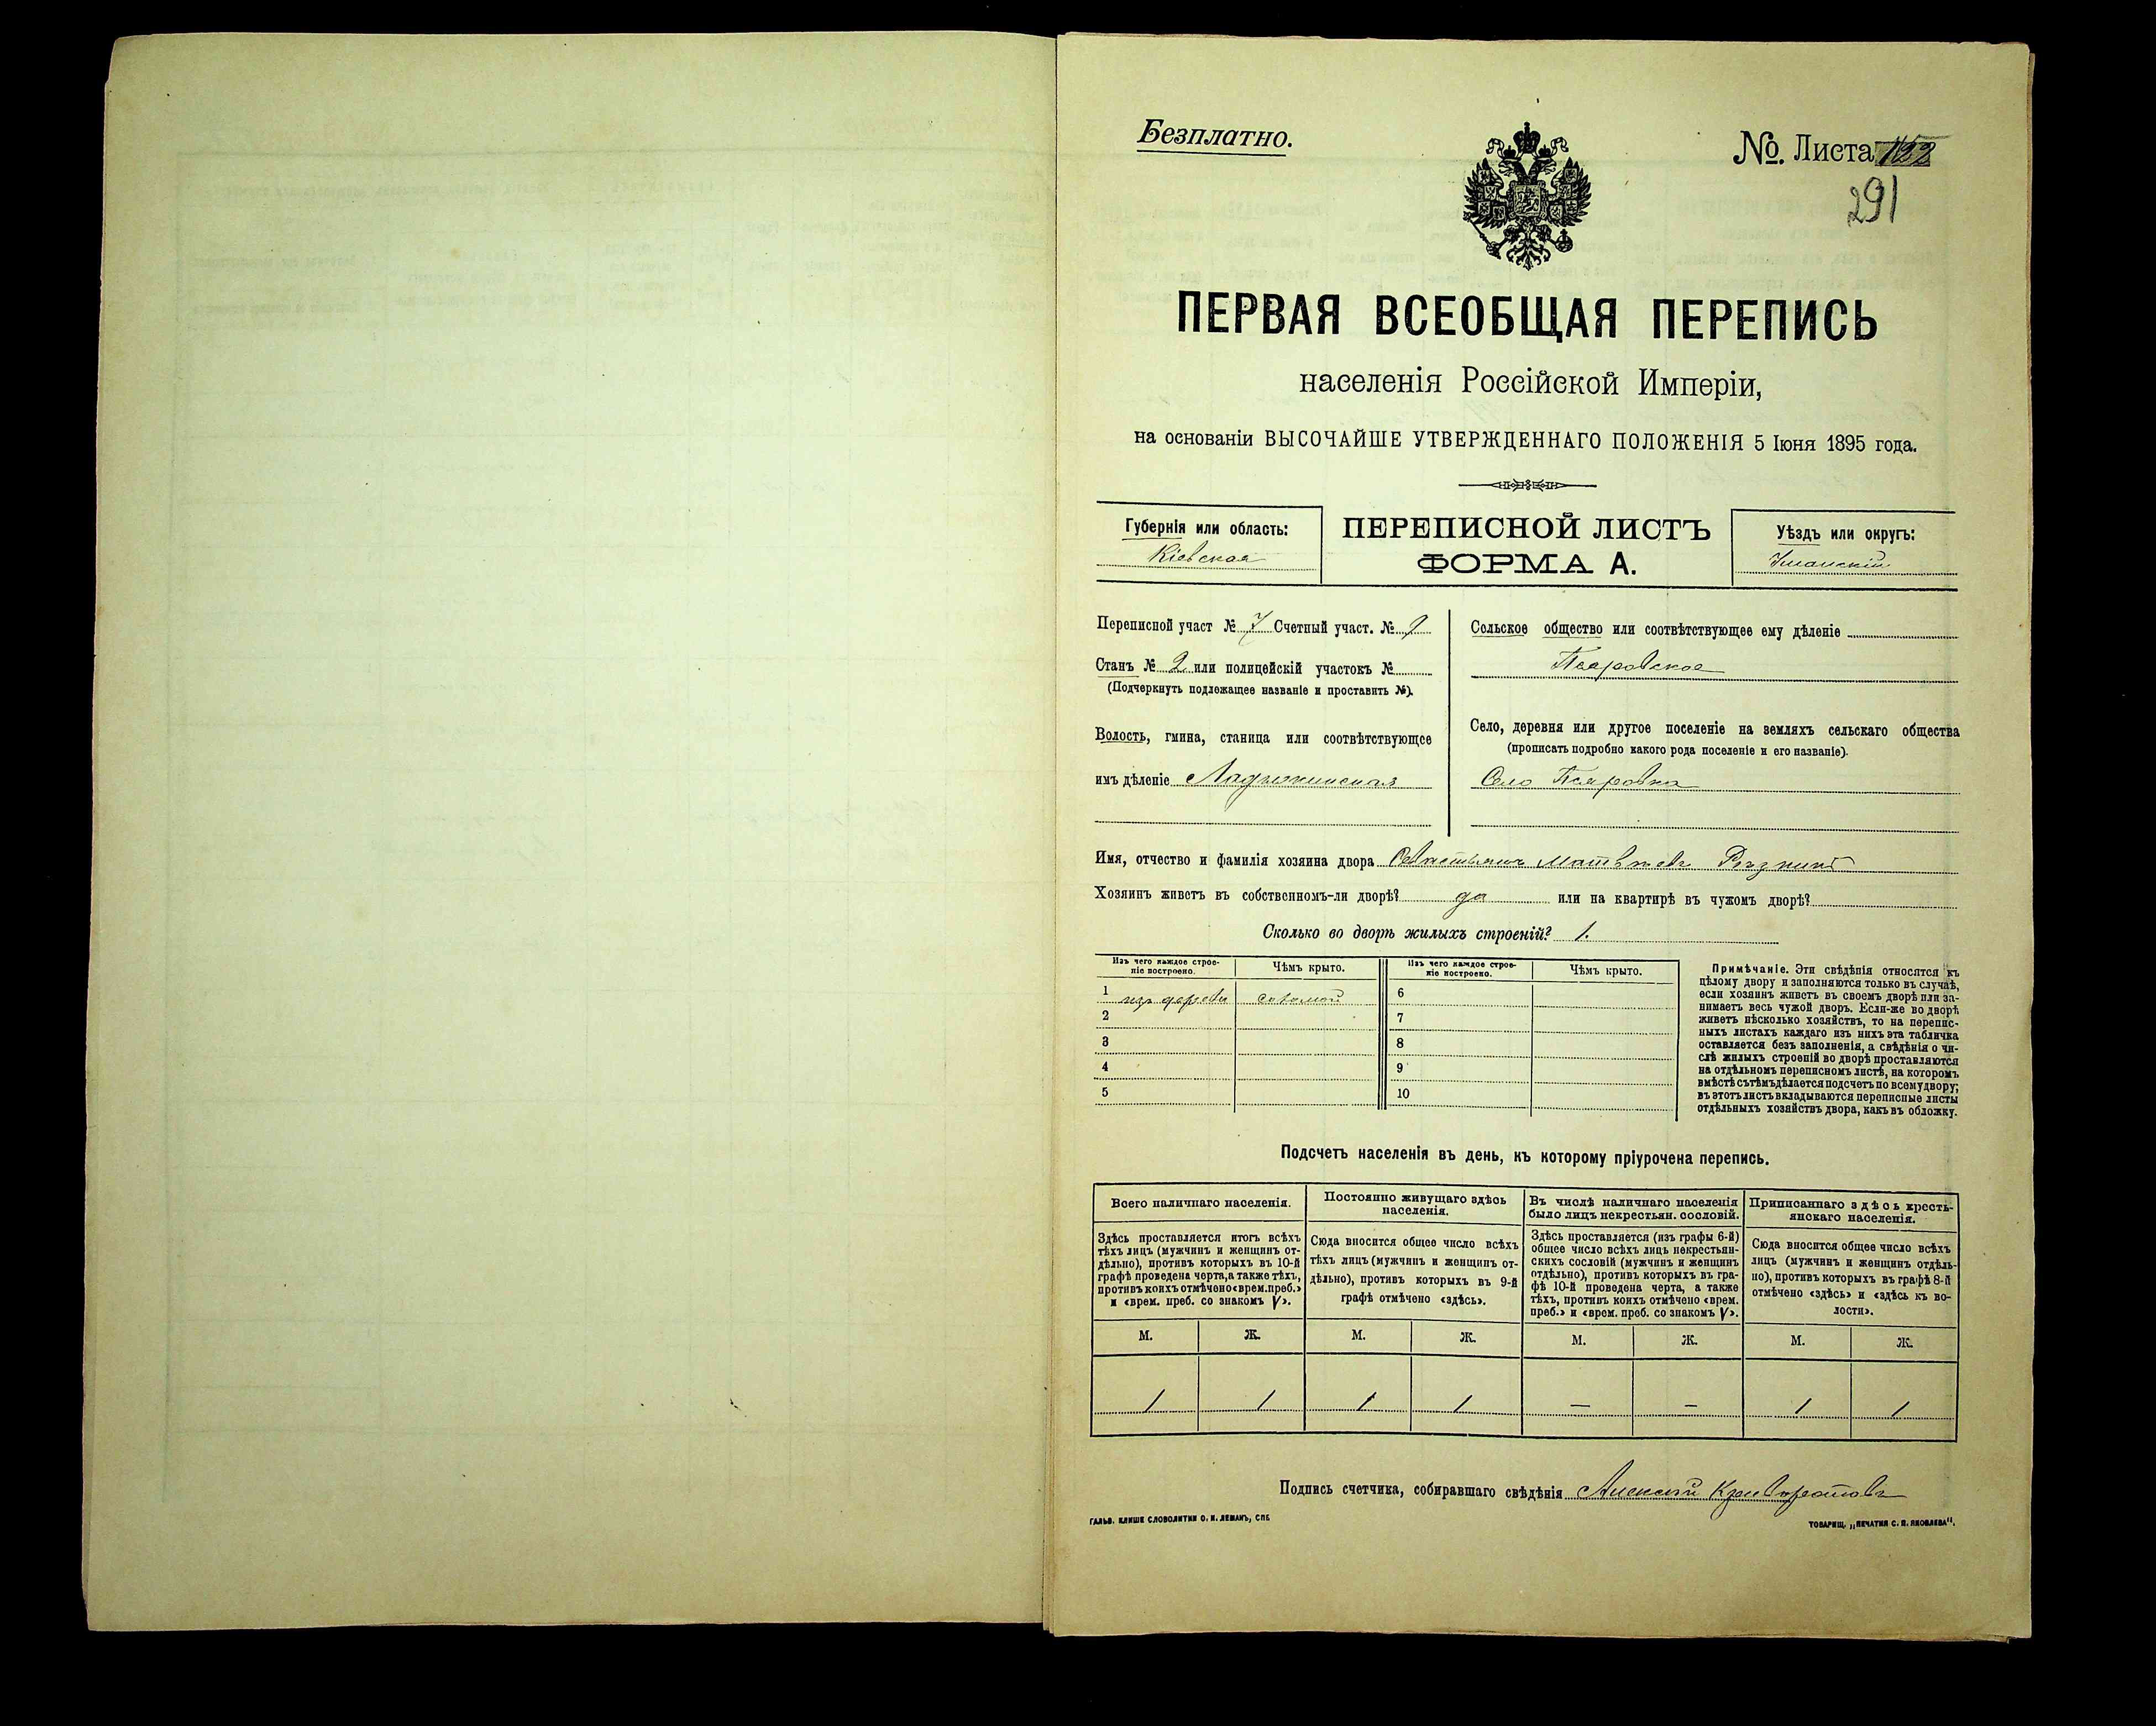 Безплатно.
№. Листа 122
291
ПЕРВАЯ ВСЕОБЩАЯ ПЕРЕПИСЬ
населенія Россійской Имперіи,
на основаніи ВЫСОЧАЙШЕ УТВЕРЖДЕННАГО ПОЛОЖЕНІЯ 5 Іюня 1895 года.
Губернія или область:
Кіевская
ПЕРЕПИСНОЙ ЛИСТЪ
ФОРМА А.
Уѣздъ или округъ:
Уманскій
Переписной участ № 7 Счетный участ. № 9
Станъ № 2 или полицейскій участокъ №
(Подчеркнуть подлежащее названіе и проставить №).
Волость, гмина, станица или соотвѣтствующее
имъ дѣленіе Ладыжинская
Сельское общество или соотвѣтствующее ему дѣленіе
Псаровское
Село, деревня или другое поселеніе на земляхъ сельскаго общества
(прописать подробно какого рода поселеніе и его названіе).
Село Псаровка
Имя, отчество и фамилія хозяина двора Севастьянъ Матвѣевъ
Хозяинъ живетъ въ собственномъ-ли дворѣ? да или на квартирѣ въ чужомъ дворѣ?
Сколько во дворѣ жилыхъ строеній? 1.
Изъ чего каждое строе-
ніе построено.
Чѣмъ крыто.
Изъ чего каждое строе-
ніе построено.
Чѣмъ крыто.
1 изъ дерева соломой 6
2 7
3 8
4 9
5 10
Примѣчаніе. Эти свѣдѣнія относятся къ
цѣлому двору и заполняются только въ случаѣ,
если хозяинъ живетъ въ своемъ дворѣ или за-
нимаетъ весь чужой дворъ. Если-же во дворѣ
живетъ нѣсколько хозяйствъ, то на перепис-
ныхъ листахъ каждаго изъ нихъ эта табличка
оставляется безъ заполненія, а свѣдѣнія о чи-
слѣ жилыхъ строеній во дворѣ проставляются
на отдѣльномъ переписномъ листѣ, на которомъ
вмѣстѣ съ тѣмъ дѣлается подсчетъ по всему двору;
въ этотъ листъ вкладываются переписные листы
отдѣльныхъ хозяйствъ двора, какъ въ обложку.
Подсчетъ населенія въ день, къ которому пріурочена перепись.
Всего наличнаго населенія.
Здѣсь проставляется итогъ всѣхъ
тѣхъ лицъ (мужчинъ и женщинъ от-
дѣльно), противъ которыхъ въ 10-й
графѣ проведена черта, а также тѣхъ,
противъ коихъ отмѣчено «врем. преб.»
и «врем. преб. со знакомъ V».
Постоянно живущаго здѣсь
населенія.
Сюда вносится общее число всѣхъ
тѣхъ лицъ (мужчинъ и женщинъ от-
дѣльно), противъ которыхъ въ 9-й
графѣ отмѣчено «здѣсь».
Въ числѣ наличнаго населенія
было лицъ некрестьян. сословій.
Здѣсь проставляется (изъ графы 6-й)
общее число всѣхъ лицъ некрестьян-
скихъ сословій (мужчинъ и женщинъ
отдѣльно), противъ которыхъ въ гра-
фѣ 10-й проведена черта, а также
тѣхъ, противъ коихъ отмѣчено «врем.
преб.» и «врем. преб. со знакомъ V».
Приписаннаго здѣсь кресть-
янскаго населенія.
Сюда вносится общее число всѣхъ
лицъ (мужчинъ и женщинъ отдѣль-
но), противъ которыхъ въ графѣ 8-й
отмѣчено «здѣсь» и «здѣсь къ во-
лости».
М. Ж. М. Ж. М. Ж. М. Ж.
1 1 1 1 — — 1 1
Подпись счетчика, собиравшаго свѣдѣнія Алексѣй
ГАЛЬВ. КЛИШЕ СЛОВОЛИТНИ О. И. ЛЕМАНЪ, СПБ.
ТОВАРИЩ. „ПЕЧАТНЯ С. П. ЯКОВЛЕВА".